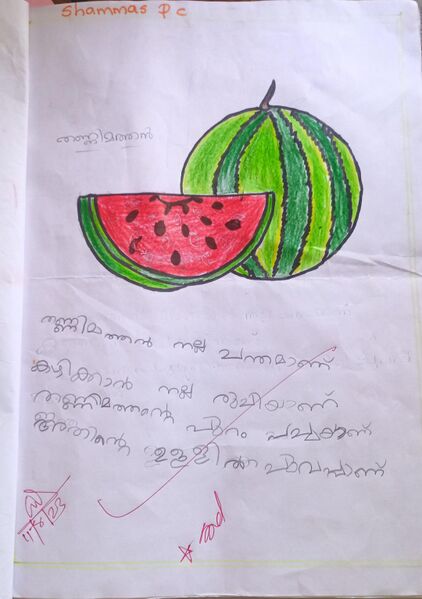 Shammas P C
തണ്ണിമത്തൻ
തണ്ണിമത്തൻ നല്ല ചന്തമാണ്
കഴിക്കാൻ നല്ല രുചിയാണ്
തണ്ണിമത്തന്റെ പുറം പച്ചയാണ്
അതിന്റെ ഉള്ളിൽ ചുവപ്പാണ്